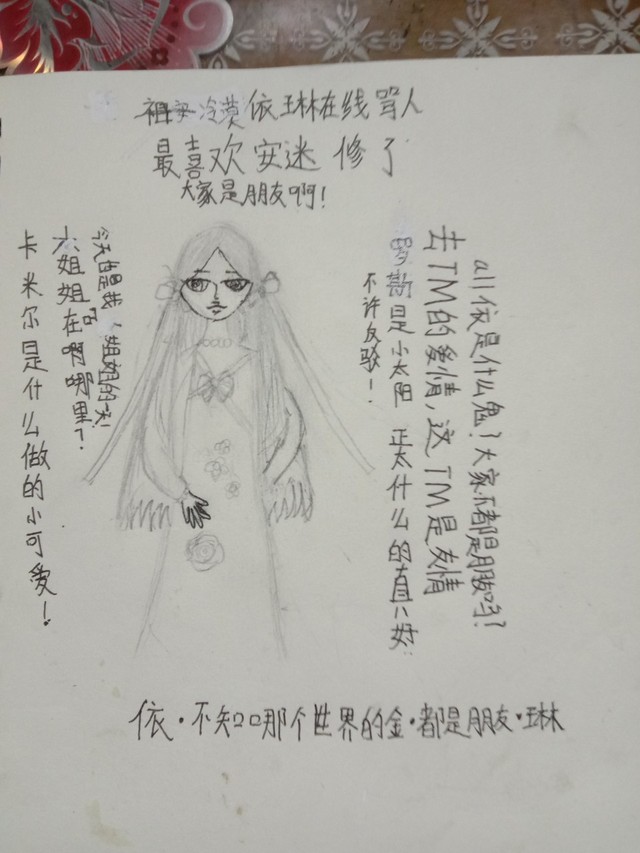 祖安冷漠依琳林在线骂人
最喜欢安迷修了
大家是朋友啊!
all依是什么鬼?大家不都是朋友吗?
去TM的爱情,这TM是友情
罗斯是小太阳 正太什么的直八安
不许反驳!
姐姐的
大姐姐在啊哪里?
卡米尔是什么做的小可爱!
依·不知口那个世界的金·都是朋友·琳